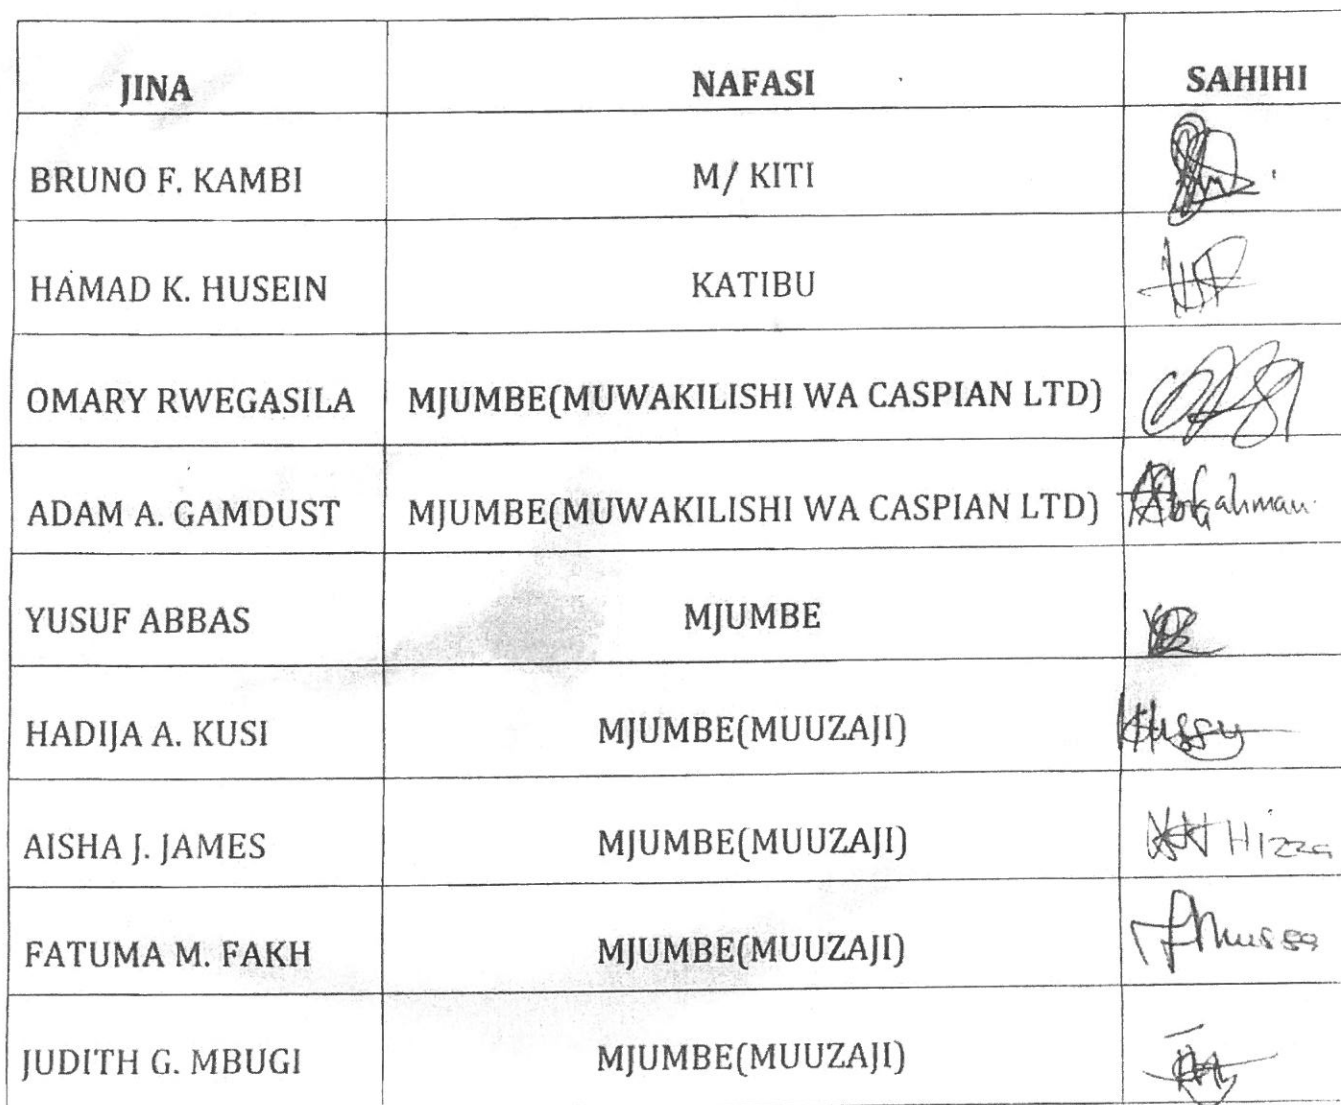 JINA NAFASI SAHIHI
BRUNO F. KAMBI M/ KITI
HAMAD K. HUSEIN KATIBU
OMARY RWEGASILA MJUMBE(MUWAKILISHI WA CASPIAN LTD)
ADAM A. GAMDUST MJUMBE(MUWAKILISHI WA CASPIAN LTD)
YUSUF ABBAS MJUMBE
HADIJA A. KUSI MJUMBE(MUUZAJI)
AISHA J. JAMES MJUMBE(MUUZAJI) Hizza
FATUMA M. FAKH MJUMBE(MUUZAJI)
JUDITH G. MBUGI MJUMBE(MUUZAJI)